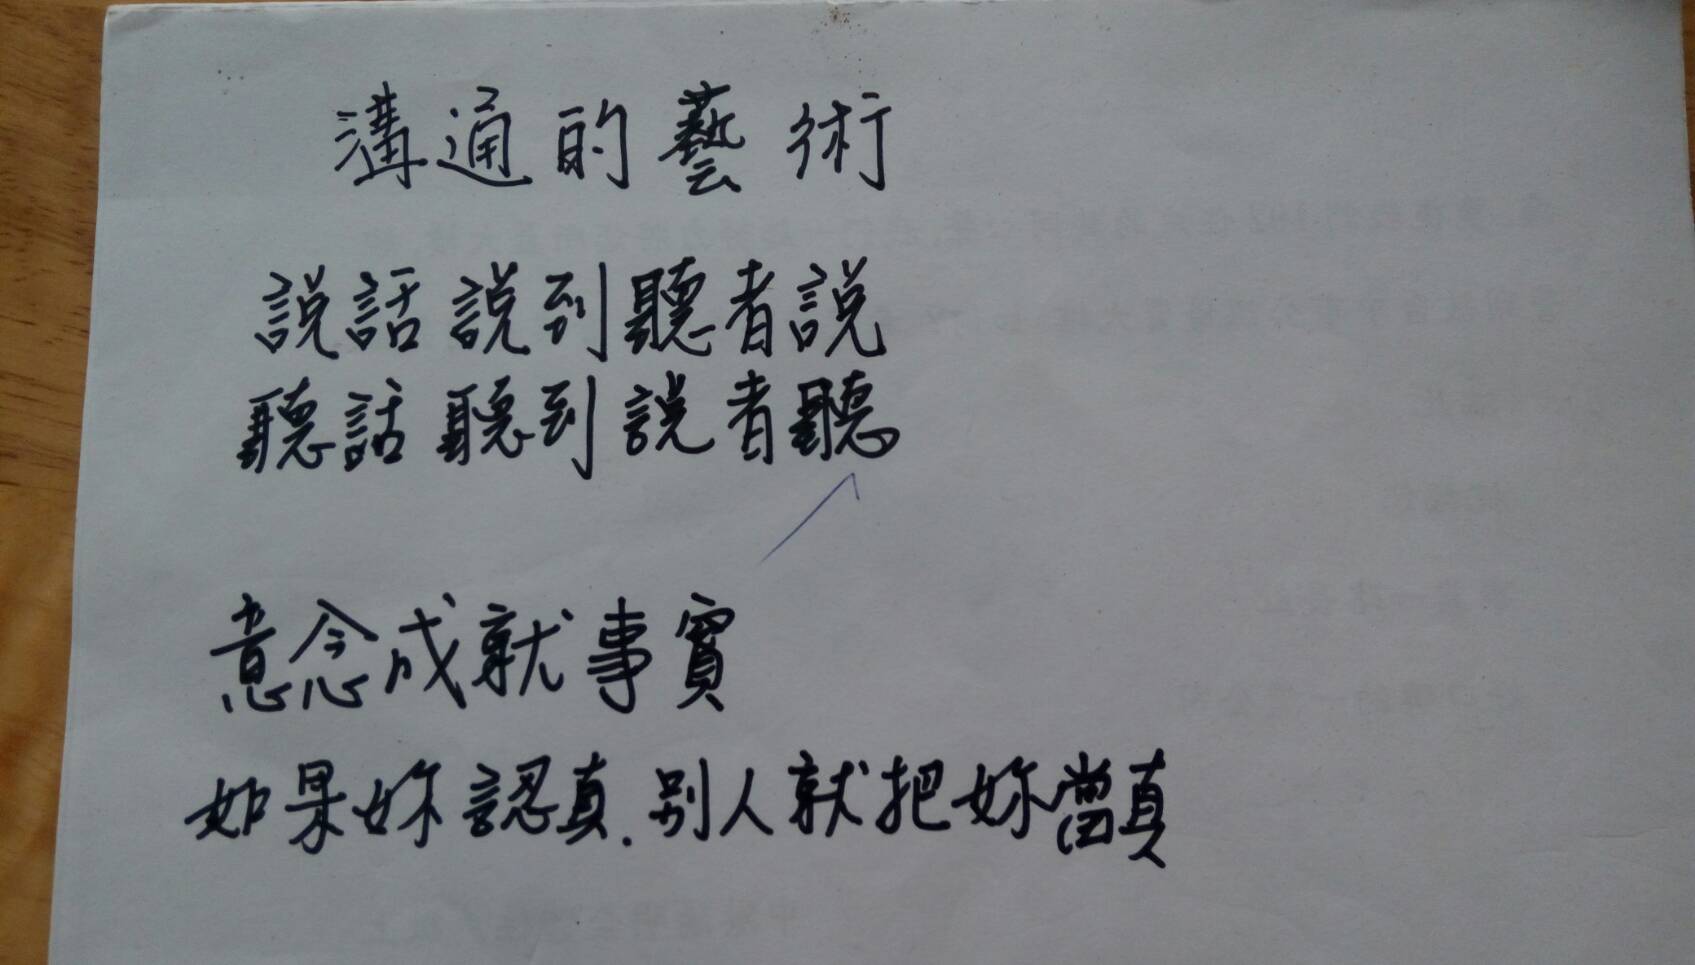 溝通的藝術
說話說到聽者說
聽話聽到說者聽
意念成就事實
如果妳認真.別人就把妳當真